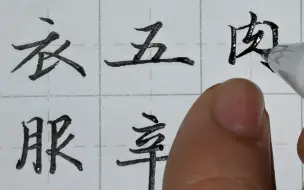 衣五肉
服辛